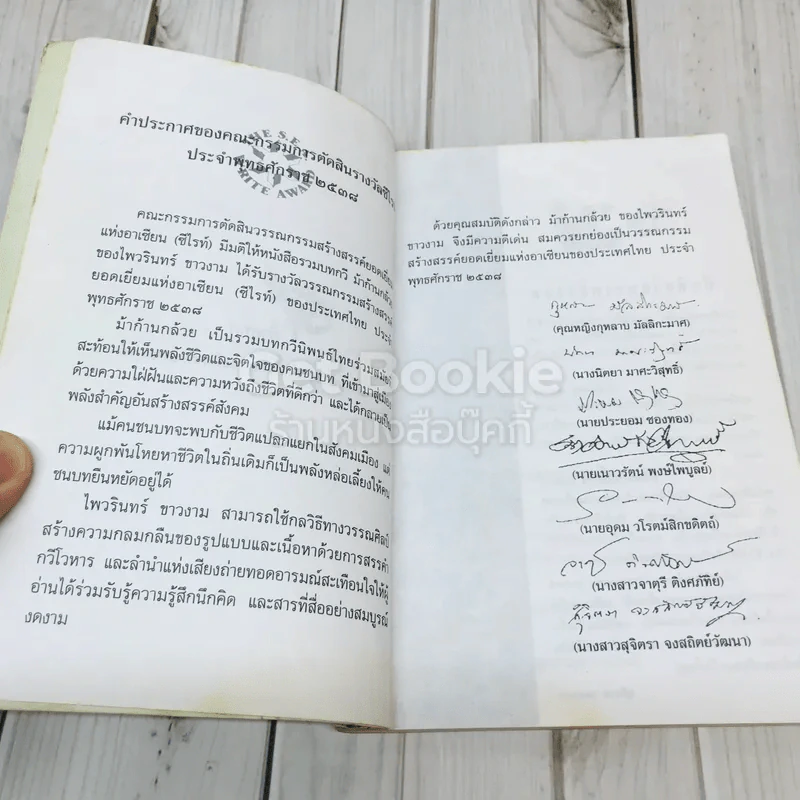 คำประกาศของคณะกรรมการตัดสินรางวัลซีไรต์
ประจำพุทธศักราช ๒๕๓๘
คณะกรรมการตัดสินวรรณกรรมสร้างสรรค์ยอดเยี่ยม
แห่งอาเซียน (ซีไรท์) มีมติให้หนังสือรวมบทกวี ม้าก้านกล้วย
ของไพวรินทร์ ขาวงาม ได้รับรางวัลวรรณกรรมสร้างสรรค์
ยอดเยี่ยมแห่งอาเซียน (ซีไรท์) ของประเทศไทย ประจำ
พุทธศักราช ๒๕๓๘
ม้าก้านกล้วย เป็นรวมบทกวีนิพนธ์ไทยร่วมสมัย
สะท้อนให้เห็นพลังชีวิตและจิตใจของคนชนบท ที่เข้ามาสู่เมือง
ด้วยความใฝ่ฝันและความหวังถึงชีวิตที่ดีกว่า และได้กลายเป็น
พลังสำคัญอันสร้างสรรค์สังคม
แม้คนชนบทจะพบกับชีวิตแปลกแยกในสังคมเมือง แต่
ความผูกพันโหยหาชีวิตในถิ่นเดิมก็เป็นพลังหล่อเลี้ยงให้คน
ชนบทยืนหยัดอยู่ได้
ไพวรินทร์ ขาวงาม สามารถใช้กลวิธีทางวรรณศิลป์
สร้างความกลมกลืนของรูปแบบและเนื้อหาด้วยการสรรคำ
กวีโวหาร และลำนำแห่งเสียงถ่ายทอดอารมณ์สะเทือนใจให้ผู้
อ่านได้ร่วมรับรู้ความรู้สึกนึกคิด และสารที่สื่ออย่างสมบูรณ์
งดงาม
ด้วยคุณสมบัติดังกล่าว ม้าก้านกล้วย ของไพวรินทร์
ขาวงาม จึงมีความดีเด่น สมควรยกย่องเป็นวรรณกรรม
สร้างสรรค์ยอดเยี่ยมแห่งอาเซียนของประเทศไทย ประจำ
พุทธศักราช ๒๕๓๘
(คุณหญิงกุหลาบ มัลลิกะมาศ)
(นางนิตยา มาศะวิสุทธิ์)
(นายประยอม ซองทอง)
(นายเนาวรัตน์ พงษ์ไพบูลย์)
(นายอุดม วโรตม์สิกขดิตถ์)
(นางสาวจาตุรี ติงศภัทิย์)
(นางสาวสุจิตรา จงสถิตย์วัฒนา)
Get Bookie
ร้านหนังสือบุ๊คกี้